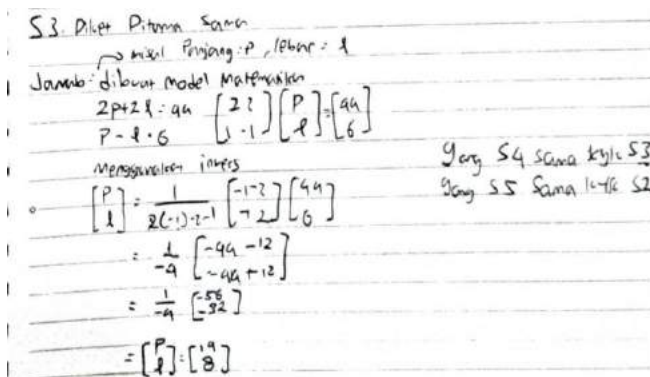 S3. Diket Ditanya Sama
→ misal Panjang: p, lebar: l
Jawab: dibuat model Matematika
2p+2l = 44 [2 2; 1 -1] [P; l] = [44; 6]
P - l = 6
Menggunakan invers
[P; l] = 1/(2(-1)-2·1) [-1 -2; -1 2] [44; 6]
= 1/-4 [-44 -12; -44 +12]
= 1/-4 [-56; -32]
= [P; l] = [14; 8]
Yang S4 sama kyk S3
Yang S5 Sama kyk S2